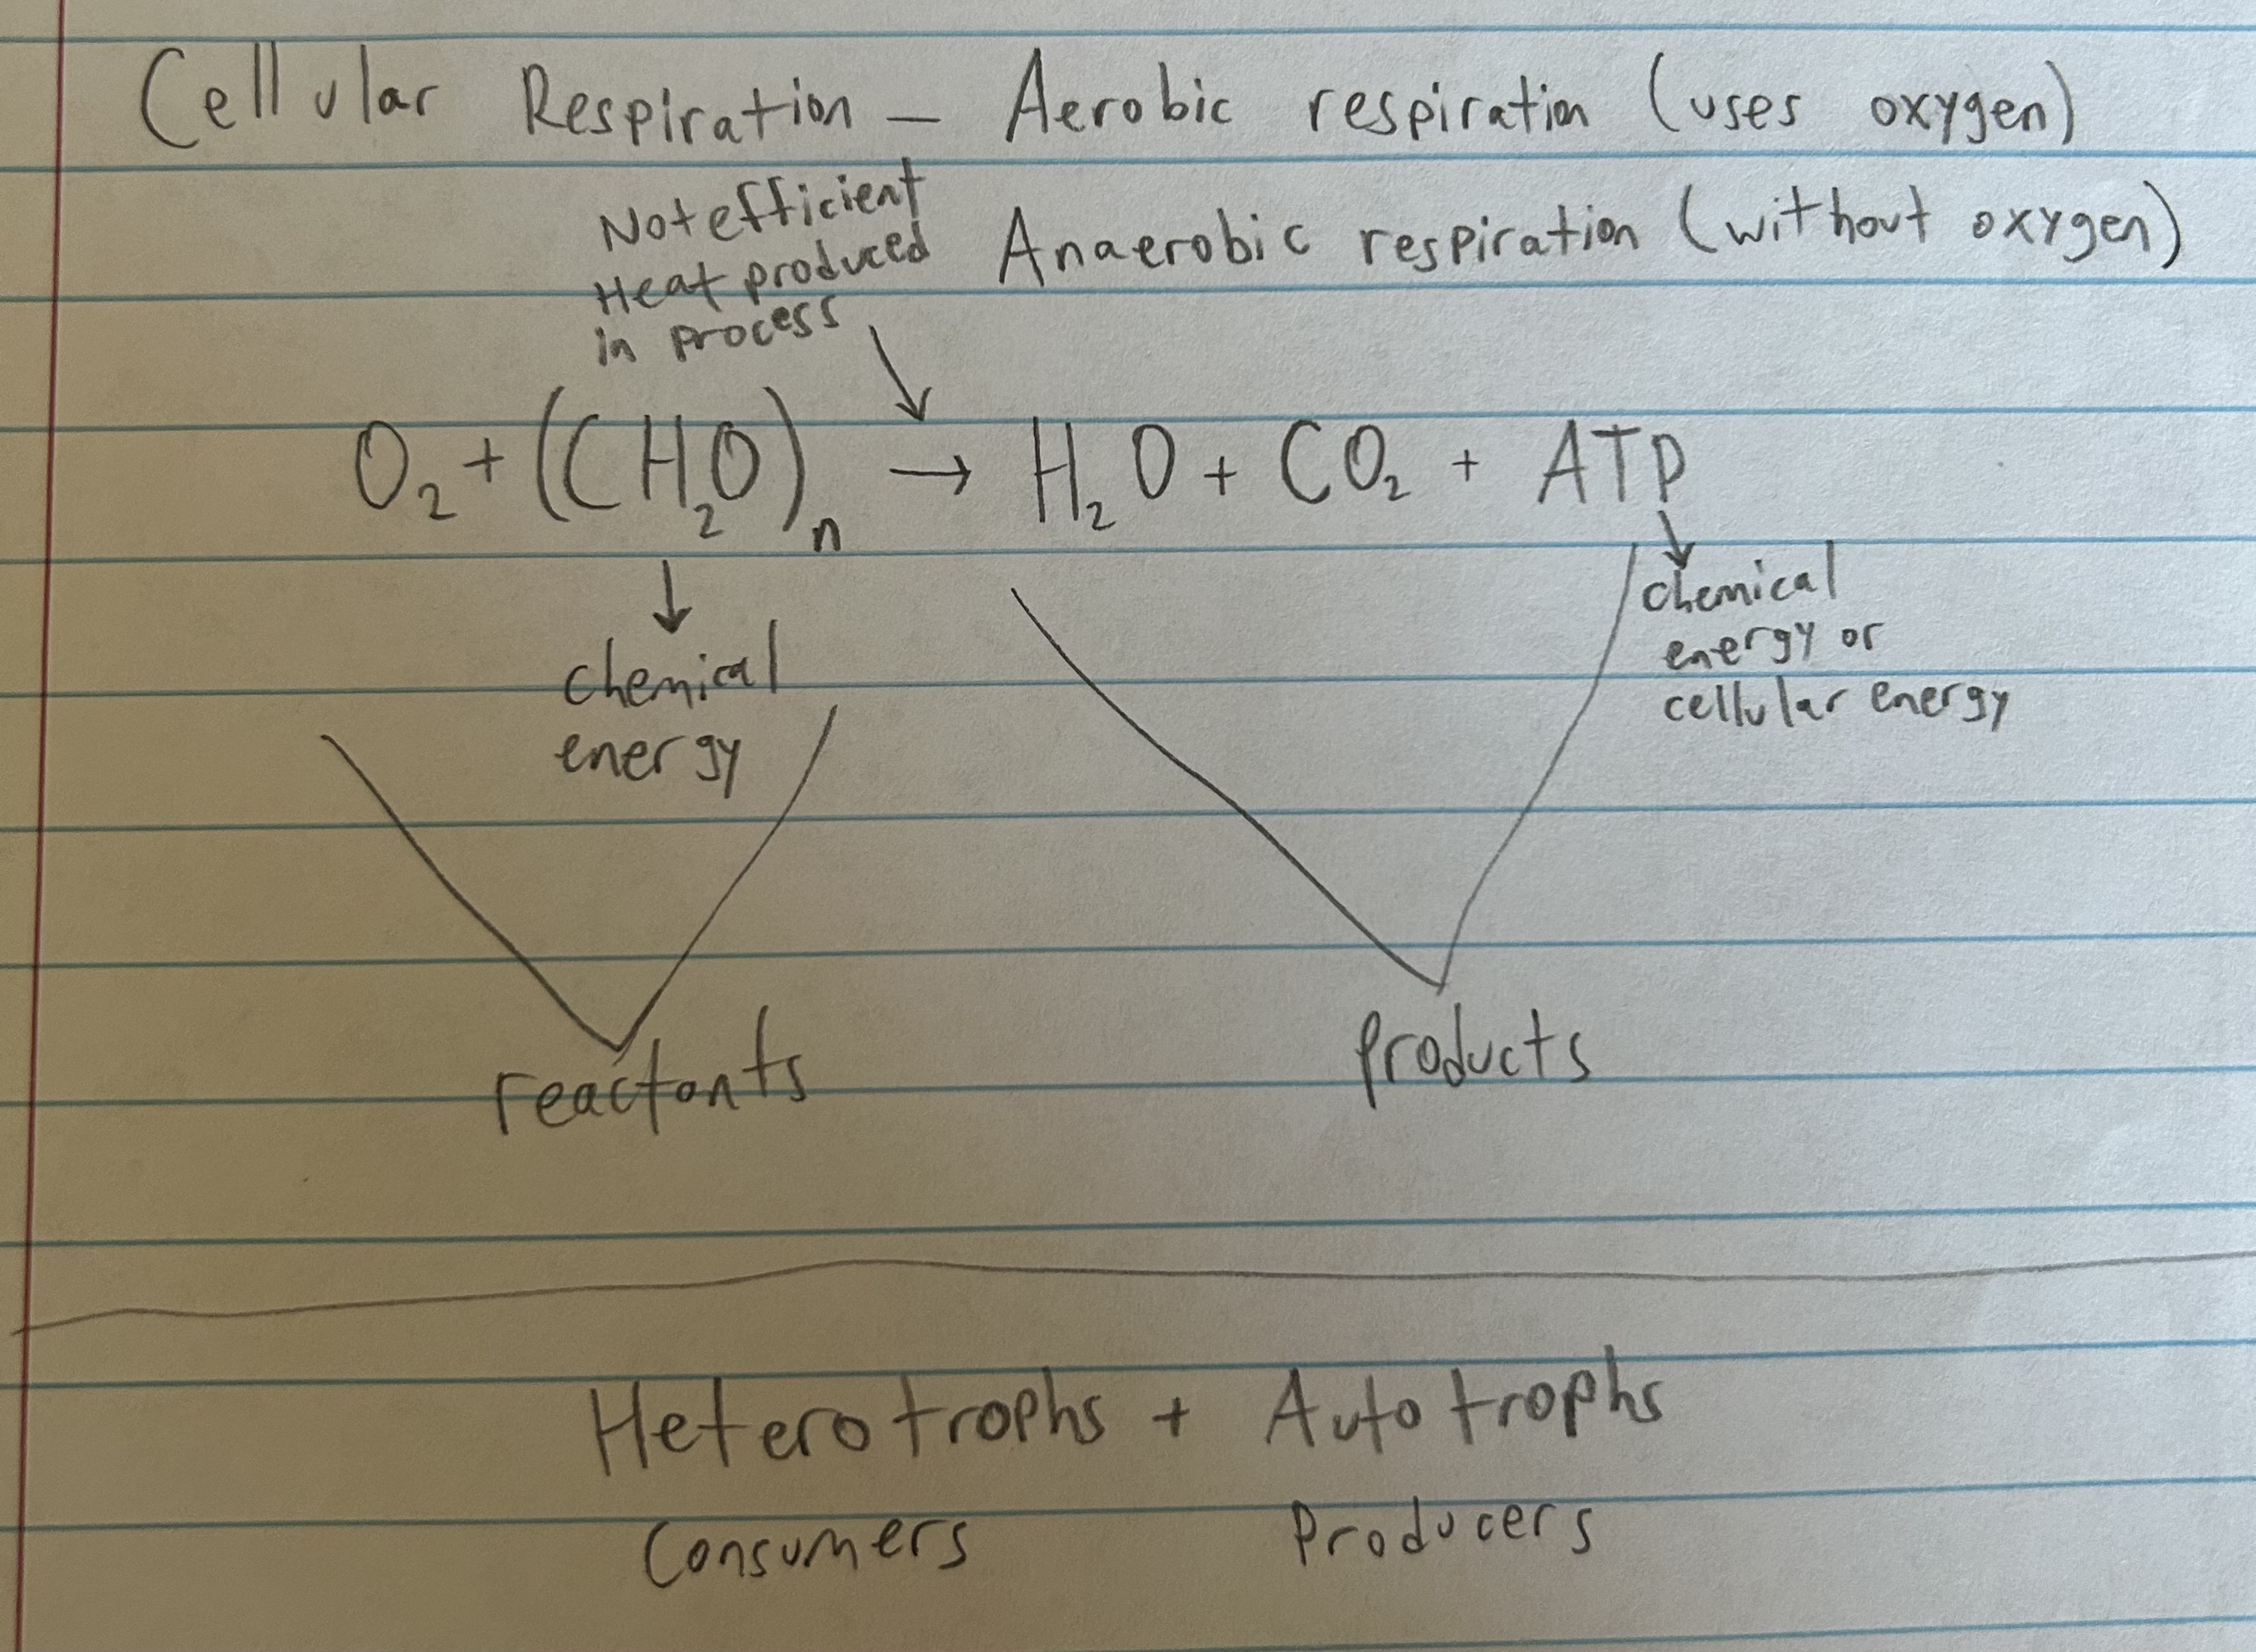 Cellular Respiration – Aerobic respiration (uses oxygen)
Anaerobic respiration (without oxygen)
Not efficient
Heat produced
in process
O₂ + (CH₂O)ₙ → H₂O + CO₂ + ATP
chemical
energy
chemical
energy or
cellular energy
reactants
products
Heterotrophs + Autotrophs
Consumers Producers